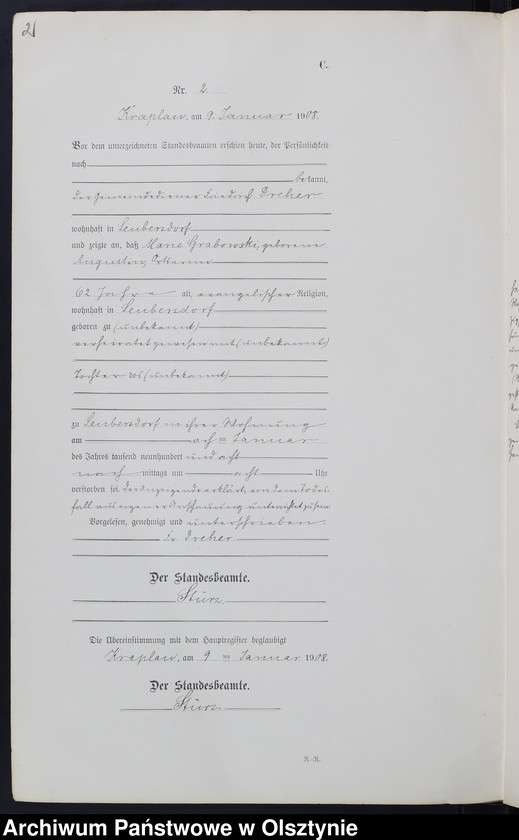 2
C.
Nr. 2
Kraplau, am 9. Januar 1908.
Vor dem unterzeichneten Standesbeamten erschien heute, der Persönlichkeit
nach
bekannt,
der Gemeindediener Friedrich Dreher
wohnhaft in Leubersdorf
und zeigte an, daß Marie Grabowski, geborene
Augustin, Ortsarme
62 Jahre alt, evangelischer Religion,
wohnhaft in Leubersdorf
geboren zu (unbekannt)
verheiratet gewesen mit (unbekannt)
Tochter des (unbekannt)
zu Leubersdorf in ihrer Wohnung
am acht ten Januar
des Jahres tausend neunhundert und acht
nach mittags um acht Uhr
verstorben sei. Der Anzeigende erklärt, von dem Todes-
fall aus eigener Anschauung unterrichtet zu sein.
Vorgelesen, genehmigt und unterschrieben
Fr Dreher
Der Standesbeamte.
Stürz
Die Übereinstimmung mit dem Hauptregister beglaubigt
Kraplau, am 9 ten Januar 1908.
Der Standesbeamte.
Stürz
Archiwum Państwowe w Olsztynie